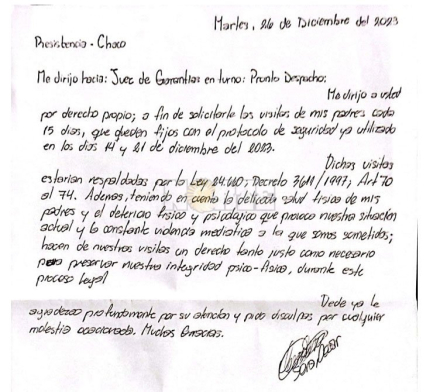 Martes, 26 de Diciembre del 2023
Resistencia - Chaco
Me dirijo hacia: Juez de Garantías en turno: Pronto Despacho:
Me dirijo a usted
por derecho propio; a fin de solicitarle las visitas de mis padres cada
15 días, que queden fijos con el protocolo de seguridad ya utilizado
en los días 14 y 21 de diciembre del 2023.
Dichas visitas
estarían respaldadas por la Ley 24.660; Decreto 3611/1997; Art 70
al 74. Además, teniendo en cuenta la delicada salud física de mis
padres y el deterioro físico y psicológico que provoca nuestra situación
actual y la constante violencia mediática a la que somos sometidos;
hacen de nuestras visitas un derecho tanto justo como necesario
para preservar nuestra integridad psico-física, durante este
proceso legal
Desde ya le
agradezco profundamente por su atención y pido disculpas por cualquier
molestia ocasionada. Muchas Gracias.